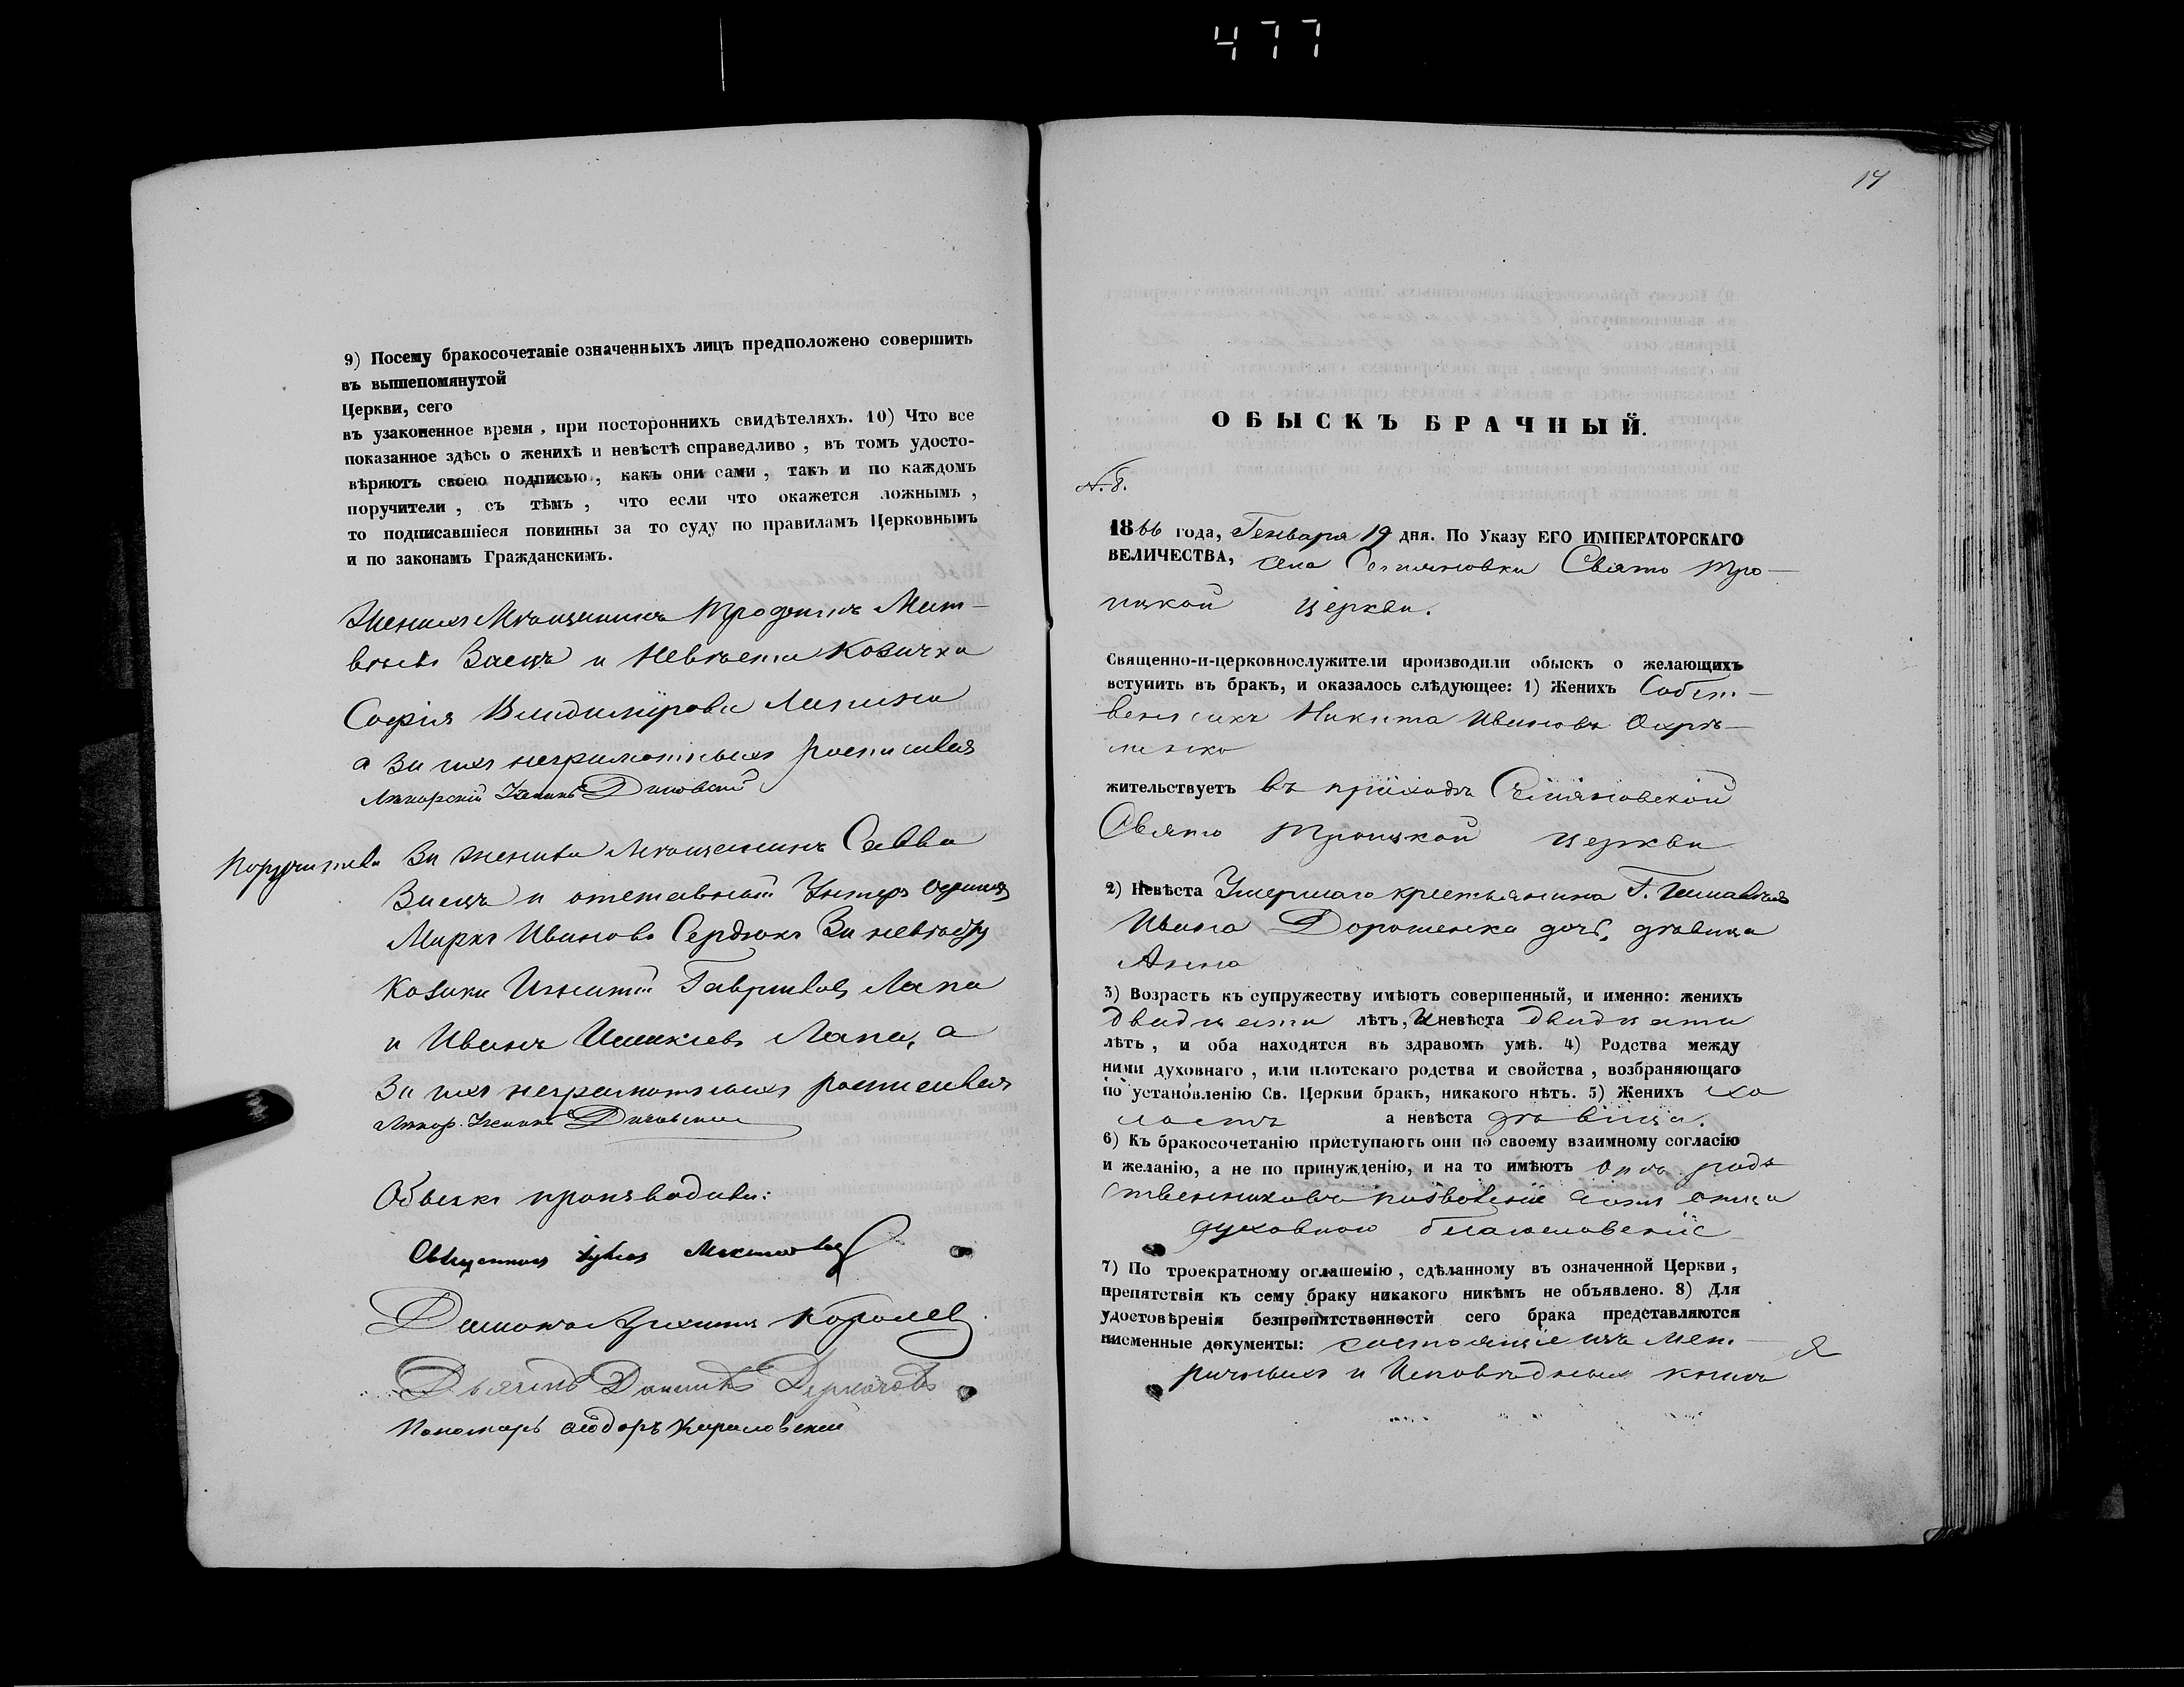 477
9) Посему бракосочетаніе означенныхъ лицъ предположено совершить
въ вышепомянутой
Церкви, сего
въ узаконенное время, при постороннихъ свидѣтеляхъ. 10) Что все
показанное здѣсь о женихѣ и невѣстѣ справедливо, въ томъ удосто-
вѣряютъ своею подписью, какъ они сами, такъ и по каждомъ
поручители, съ тѣмъ, что если что окажется ложнымъ,
то подписавшіеся повинны за то суду по правиламъ Церковнымъ
и по законамъ Гражданскимъ.
Женихъ Мѣщанинъ Трофимъ Мат-
вѣевъ Заецъ и Невѣста Козачка
Софія Владимірова Лапина
а за ихъ неграмотныхъ росписался
Поручители За жениха Мѣщанинъ Савва
Заецъ и отставный Унтеръ Офицеръ
Марко Ивановъ Сердюкъ За невѣсту
Козаки Игнатій Гавриловъ Лапа
и Иванъ Лапа, а
за ихъ неграмотныхъ росписался
Обыскъ производили:
Священникъ
Королев
Дьячекъ Даниилъ
Пономарь Ѳеодоръ
14
ОБЫСКЪ БРАЧНЫЙ.
N. 8.
1866 года, Генваря 19 дня. По Указу ЕГО ИМПЕРАТОРСКАГО
ВЕЛИЧЕСТВА, села Свято Тро-
ицкой церкви.
Священно-и-церковнослужители производили обыскъ о желающихъ
вступить въ бракъ, и оказалось слѣдующее: 1) Женихъ Собст-
венникъ Никита Ивановъ Охрѣ-
менко
жительствуетъ въ приходѣ
Свято Троицкой церкви
2) Невѣста Умершаго крестьянина Г.
Ивана Дорошенка дочь, дѣвица
Анна
3) Возрастъ къ супружеству имѣютъ совершенный, и именно: женихъ
двадцати лѣтъ, и невѣста двадцати
лѣтъ, и оба находятся въ здравомъ умѣ. 4) Родства между
ними духовнаго, или плотскаго родства и свойства, возбраняющаго
по установленію Св. Церкви бракъ, никакого нѣтъ. 5) Женихъ хо
лостъ а невѣста дѣвица.
6) Къ бракосочетанію приступаютъ они по своему взаимному согласію
и желанію, а не по принужденію, и на то имѣютъ отъ род
ственниковъ позволеніе а отъ отца
духовного благословеніе
7) По троекратному оглашенію, сдѣланному въ означенной Церкви,
препятствія къ сему браку никакого никѣмъ не объявлено. 8) Для
удостовѣренія безпрепятственности сего брака представляются
писменные документы: состоящіе изъ Мет-
ричныхъ и Исповѣдныхъ книгъ